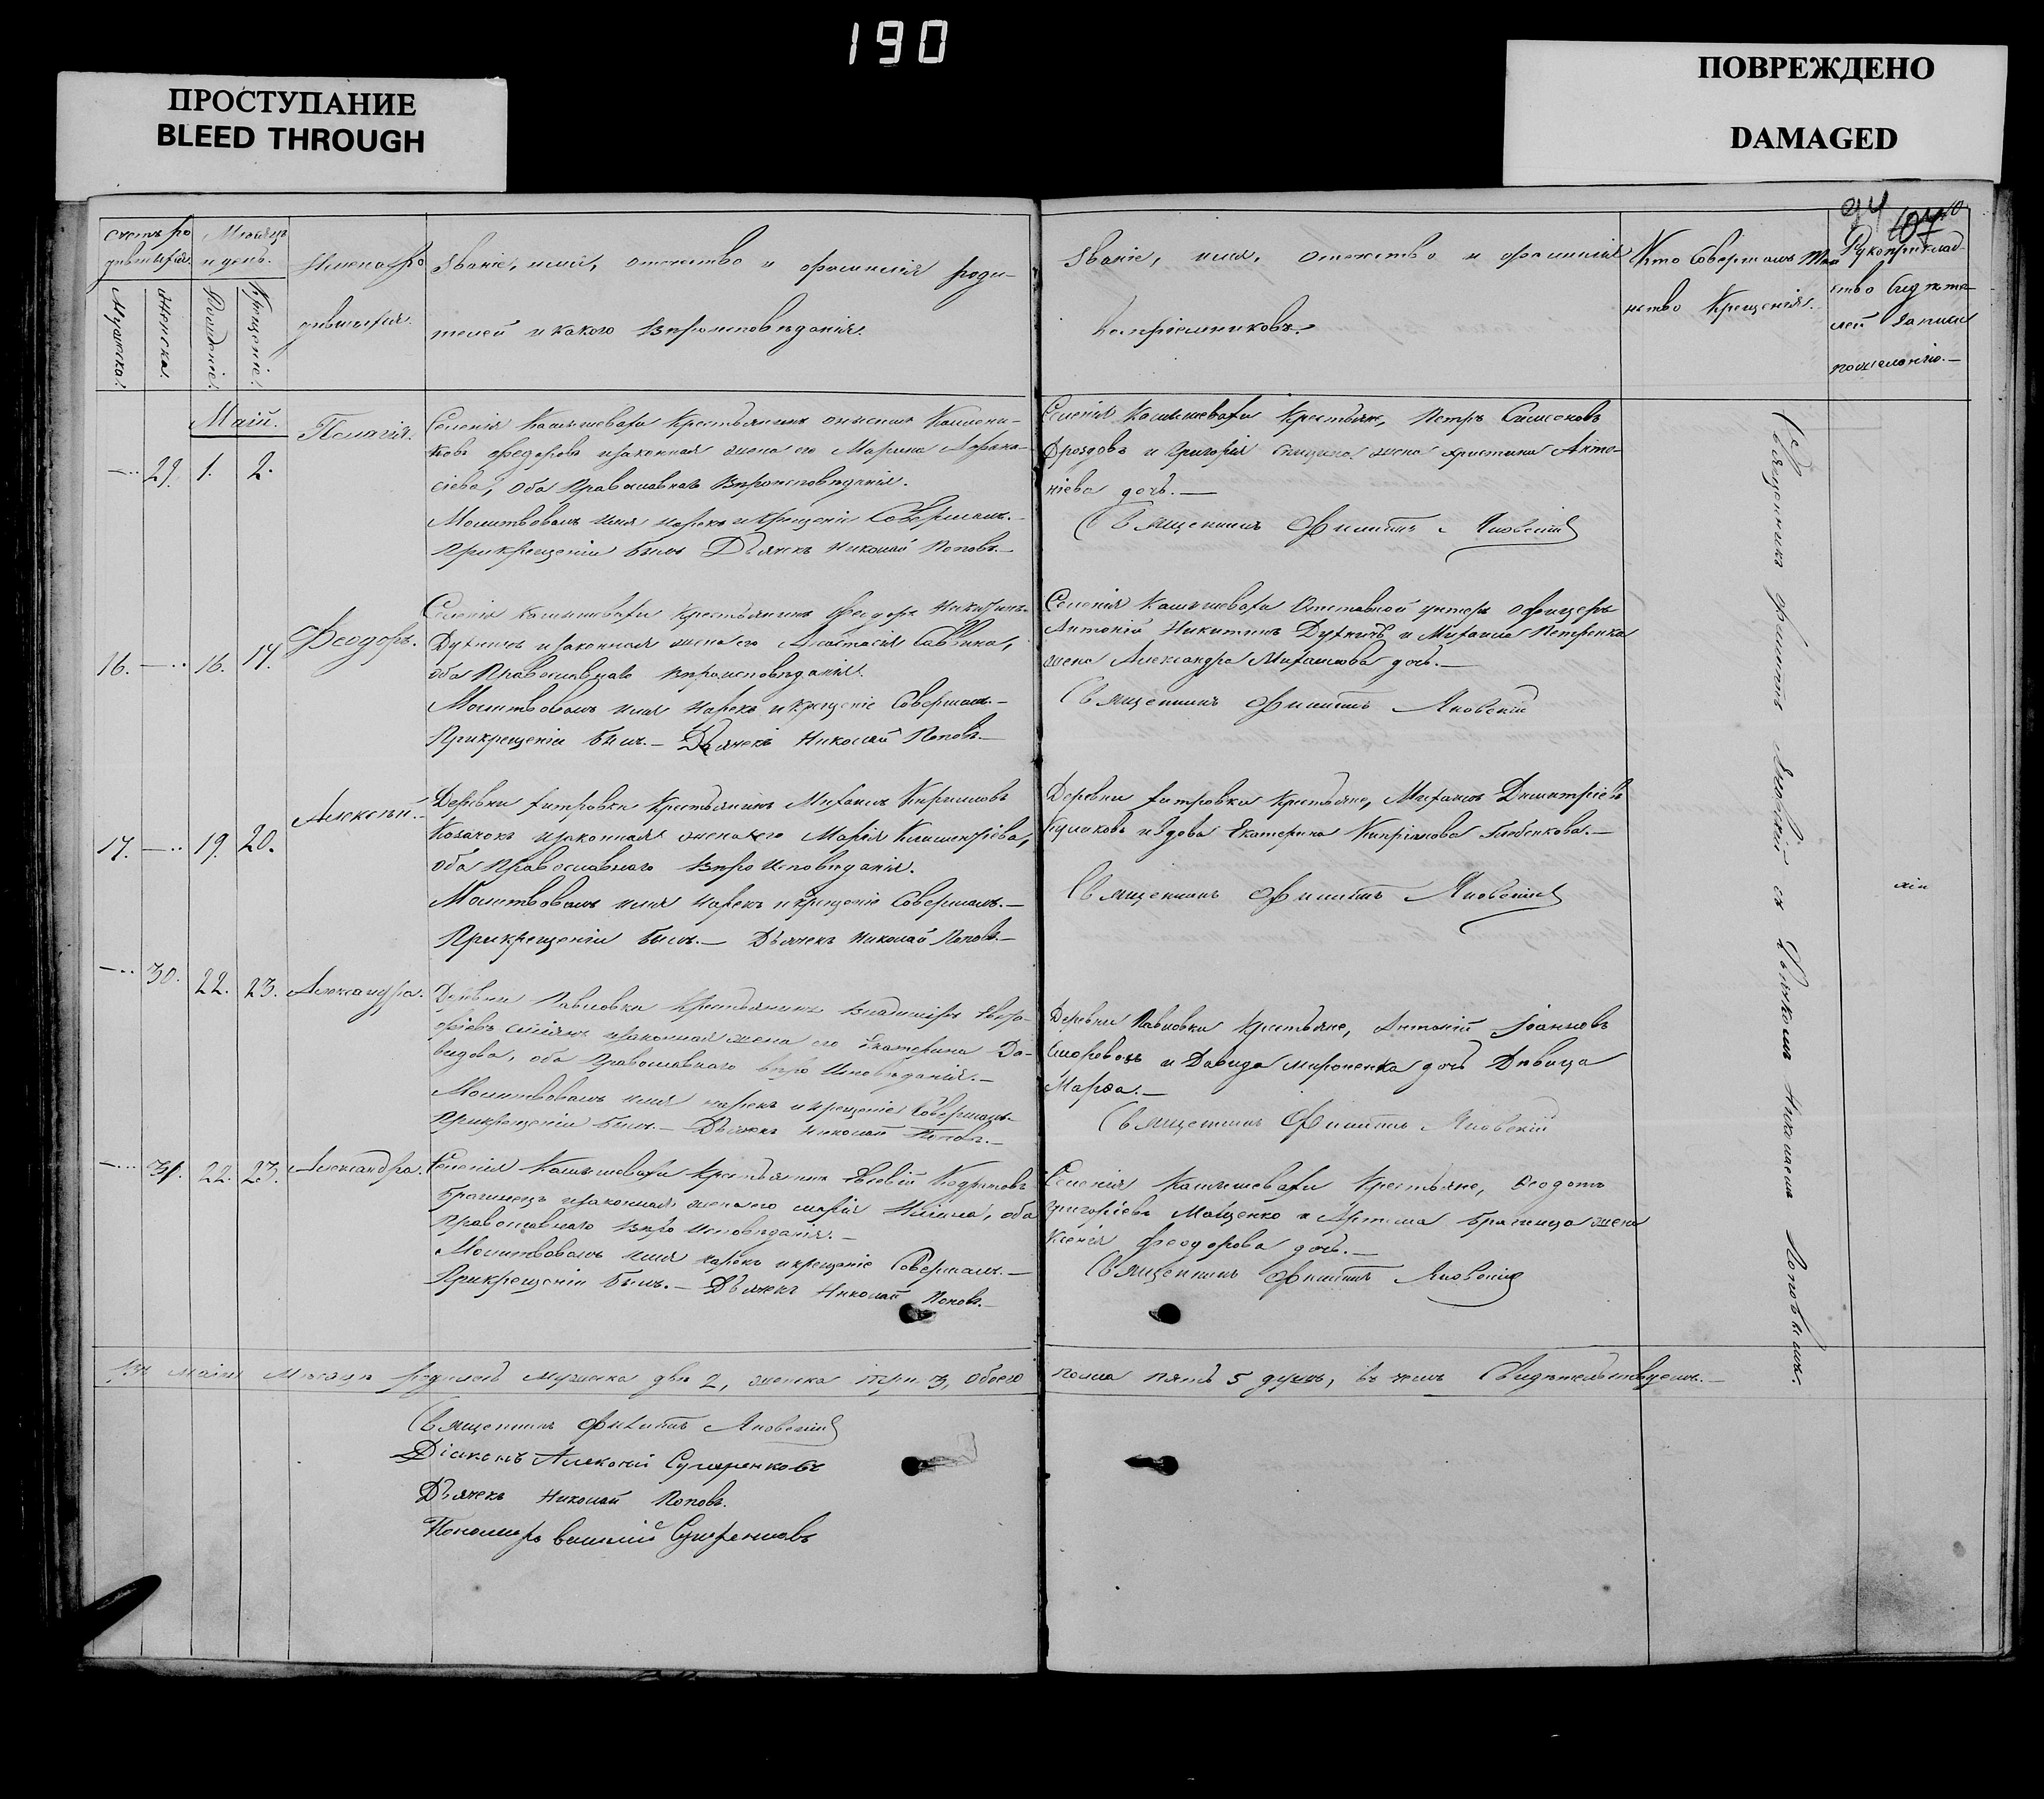 190
ПРОСТУПАНИЕ
BLEED THROUGH
ПОВРЕЖДЕНО
DAMAGED
94
107
Счетъ ро
дившихся.
Мѣсяцъ
и день.
Мужеска.
Женска.
Рожденіе.
Крещеніе.
Имена ро
дившихся.
Званіе, имя, отечество и фамилія роди-
телей и какого вѣроисповѣданія.
Званіе, имя, отечество и фамилія
воспріемниковъ.
Кто совершалъ таи
нство крещенія.
Рукоприклад-
ство свидѣте-
лей записи
по желанію.
Маій.
29. 1. 2.
Пелагія.
Селенія Камышевахи крестьянинъ
ковъ Федоровъ и законная жена его Марина Афана-
сіева, оба православнаго вѣроисповѣданія.
Молитвовалъ имя нарекъ и крещеніе совершалъ.
При крещеніи былъ Дьячекъ Николай Поповъ.
Селенія Камышевахи крестьяне, Петръ Симеоновъ
Дроздовъ и Григорія жена Христина Анто-
ніева дочь.
Священникъ Филиппъ Яновскій
16. 16. 17.
Феодоръ.
Селенія Камышевахи крестьянинъ Феодоръ Никитинъ
и законная жена его Анастасія Саввина,
оба православнаго вѣроисповѣданія.
Молитвовалъ имя нарекъ и крещеніе совершалъ.
При крещеніи былъ. Дьячекъ Николай Поповъ.
Селенія Камышевахи отставной унтеръ офицеръ
Антоній Никитинъ и Михаила Петренка
жена Александра Михайлова дочь.
Священникъ Филиппъ Яновскій
17. 19. 20.
Алексѣй.
Деревни крестьянинъ Михаилъ Кириловъ
Козачокъ и законная жена его Марія Климентіева,
оба православнаго вѣроисповѣданія.
Молитвовалъ имя нарекъ и крещеніе совершалъ.
При крещеніи былъ. Дьячекъ Николай Поповъ.
Деревни крестьяне, Михаилъ Димитріевъ
Куликовъ и вдова Екатерина Кипріянова
Священникъ Филиппъ Яновскій
30. 22. 23.
Александра.
Деревни Павловки крестьянинъ Владиміръ
и законная жена его Екатерина Да-
видова, оба православнаго вѣроисповѣданія.
Молитвовалъ имя нарекъ и крещеніе совершалъ.
При крещеніи былъ. Дьячекъ Николай Поповъ.
Деревни Павловки крестьяне, Антоній Іоанновъ
и Давида Мироненка дочь дѣвица
Марѳа.
Священникъ Филиппъ Яновскій
31. 22. 23.
Александра.
Селенія Камышевахи крестьянинъ Евсевій Кодратовъ
Брагинецъ и законная жена его Марія Ильина, оба
православнаго вѣроисповѣданія.
Молитвовалъ имя нарекъ и крещеніе совершалъ.
При крещеніи былъ. Дьячекъ Николай Поповъ.
Селенія Камышевахи крестьяне, Ѳеодотъ
Григоріевъ Мащенко и Артема Брагинца жена
Ксенія Феодорова дочь.
Священникъ Филиппъ Яновскій
Священникъ Филиппъ Яновскій съ Дьячкомъ Николаемъ Поповымъ.
Въ маіи мѣсяцѣ родилось мужеска два 2, женска три 3, обоего пола пять 5 душъ, въ чемъ свидѣтельствуемъ.
Священникъ Филиппъ Яновскій
Діаконъ Алексѣй Сукаренковъ
Дьячекъ Николай Поповъ.
Пономарь Василій